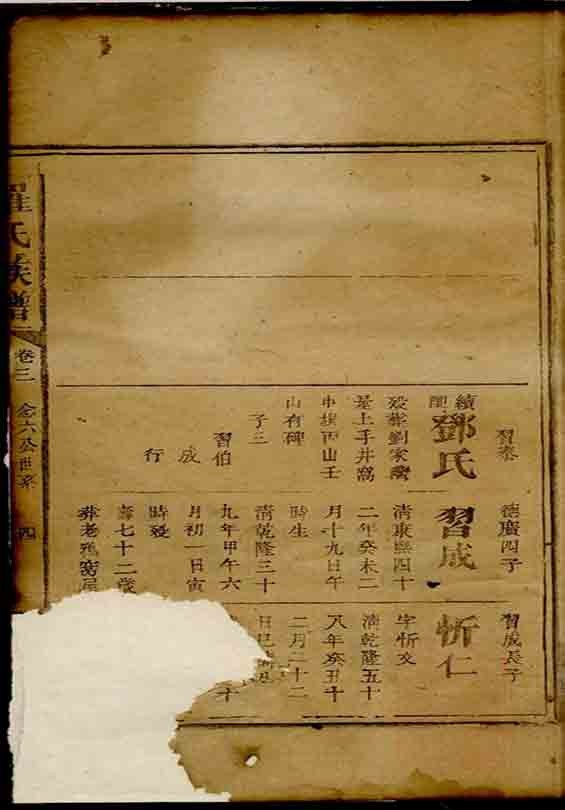 習泰
續配鄧氏
歿葬劉家灣
屋上手井窩
中嶺丙山壬
山有碑
子三
習伯
成
行
德廣四子
習成
清康熙四十
二年癸未二
月十九日午
時生
清乾隆三十
九年甲午六
月初一日寅
時歿
壽七十二歲
葬老鴉窩屋
習成長子
忻仁
字忻文
清乾隆五十
八年癸丑十
二月二十二
日巳時
十
羅氏族譜
卷三
六公世系
四